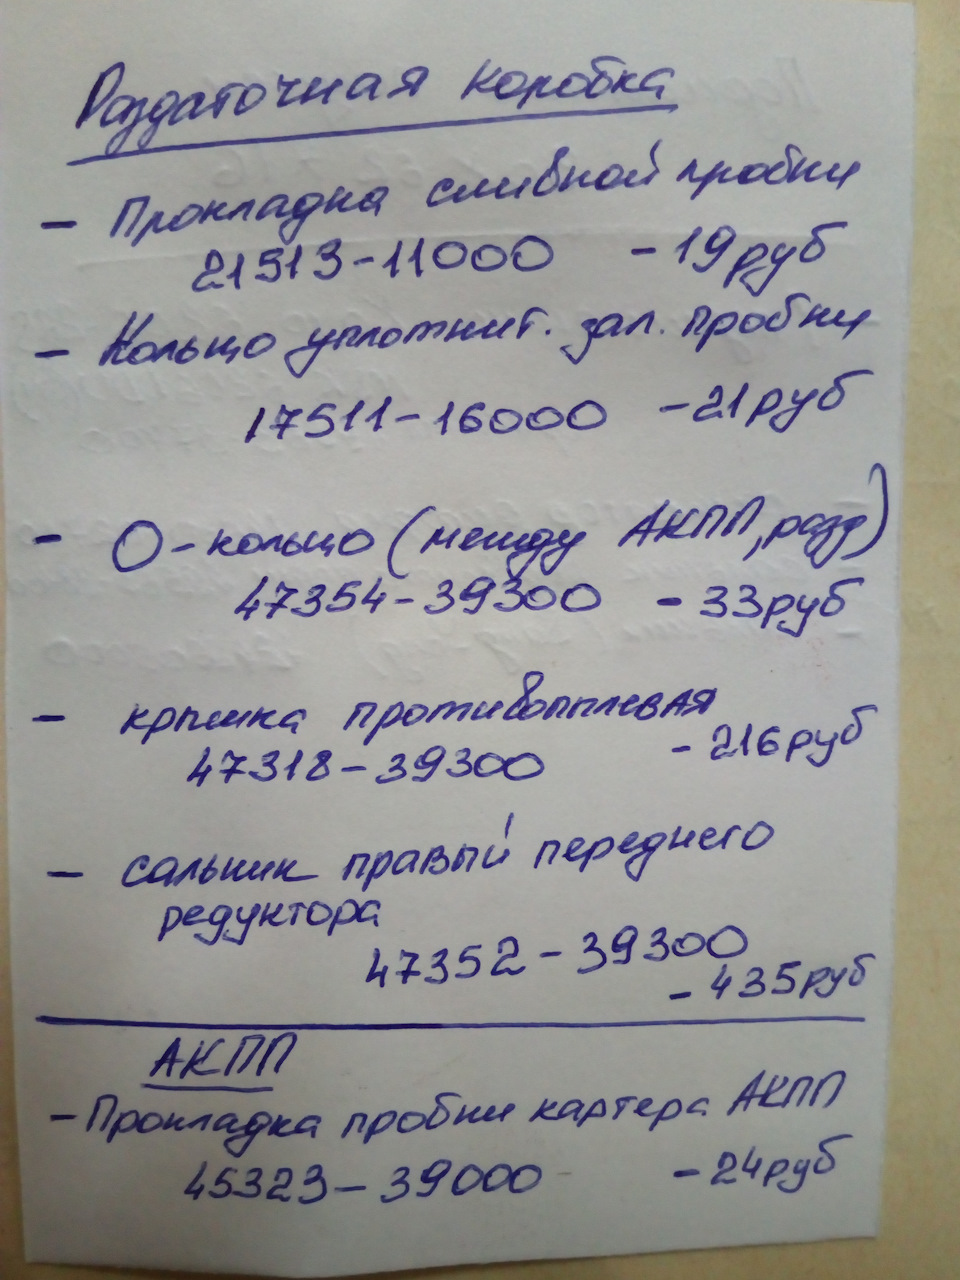 Раздаточная коробка
- Прокладка сливной пробки
21513-11000 - 19 руб
- Кольцо уплотнит. зал. пробки
17511-16000 - 21 руб
- О-кольцо (между АКПП, разд)
47354-39300 - 33 руб
- крышка противопылевая
47318-39300 - 216 руб
- сальник правый переднего
редуктора
47352-39300
- 435 руб
АКПП
- Прокладка пробки картера АКПП
45323-39000 - 24 руб